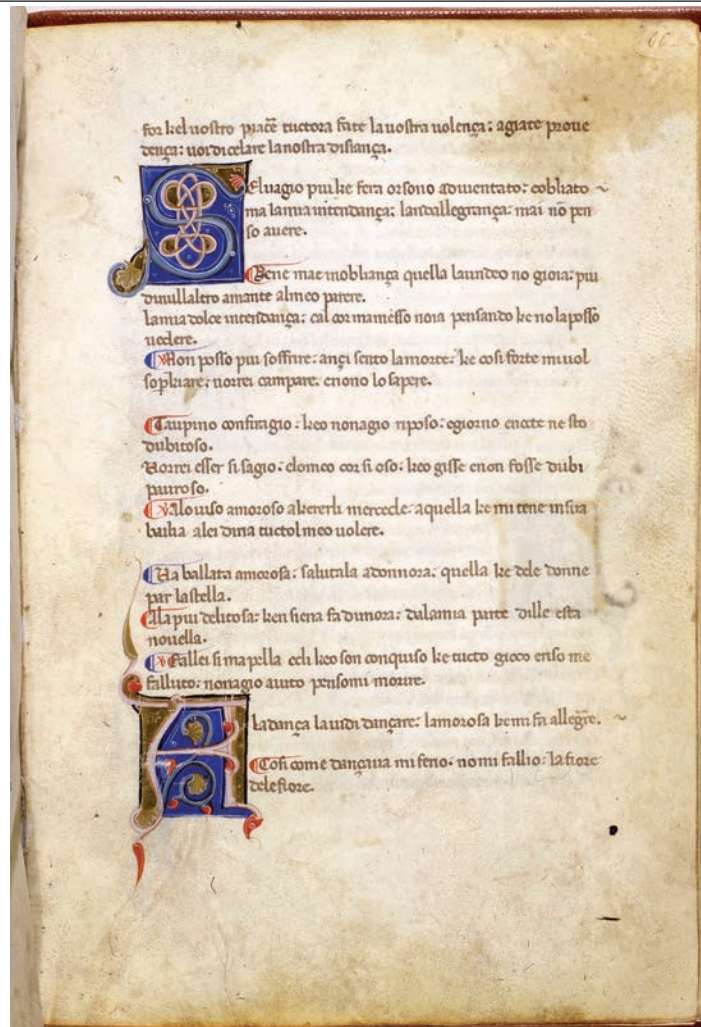 66
for kel uostro piacē tuctora fate la uostra uolença: agiate proue
dença: uoi di celare la nostra disiança.
Seluagio piu ke fera or sono adiuentato: cobliato
ma la mia intendança: lausallegrança: mai nō pen
so auere.
Bene mae in obliança quella laundeo no gioia: piu
di nullaltro amante al meo parere.
la mia dolce intendança: cal cor mamesso noia pensando ke no la posso
uedere.
Non posso piu soffrire: ançi sento la morte: ke cosi forte mi uol
sop̄kiare: uorrei campare. e nono lo sapere.
Taupino confiragio: keo non agio riposo: e giorno e nocte ne sto
dubitoso.
Vorrei esser si sagio: elo meo cor si oso: keo gisse e non fosse dubi
puiroso.
Valo uiso amoroso a kererli mercede: a quella ke mi tene in sua
bailia a lei dina tuctol meo uolere.
Va ballata amorosa: salutala a donnora: quella ke dele donne
par la stella.
Ala piu delitosa: ken siena fa dimora: da la mia parte dille esta
nouella.
Fallei si mapella e di keo son conquiso ke tucto gioco e riso me
falluto: non agio aiuto pensomi morire.
A la dança la uidi dançare: lamorosa ke mi fa allegr̄e.
Cosi come dançaua mi feno: no mi fallio: la fiore
dele fiore.